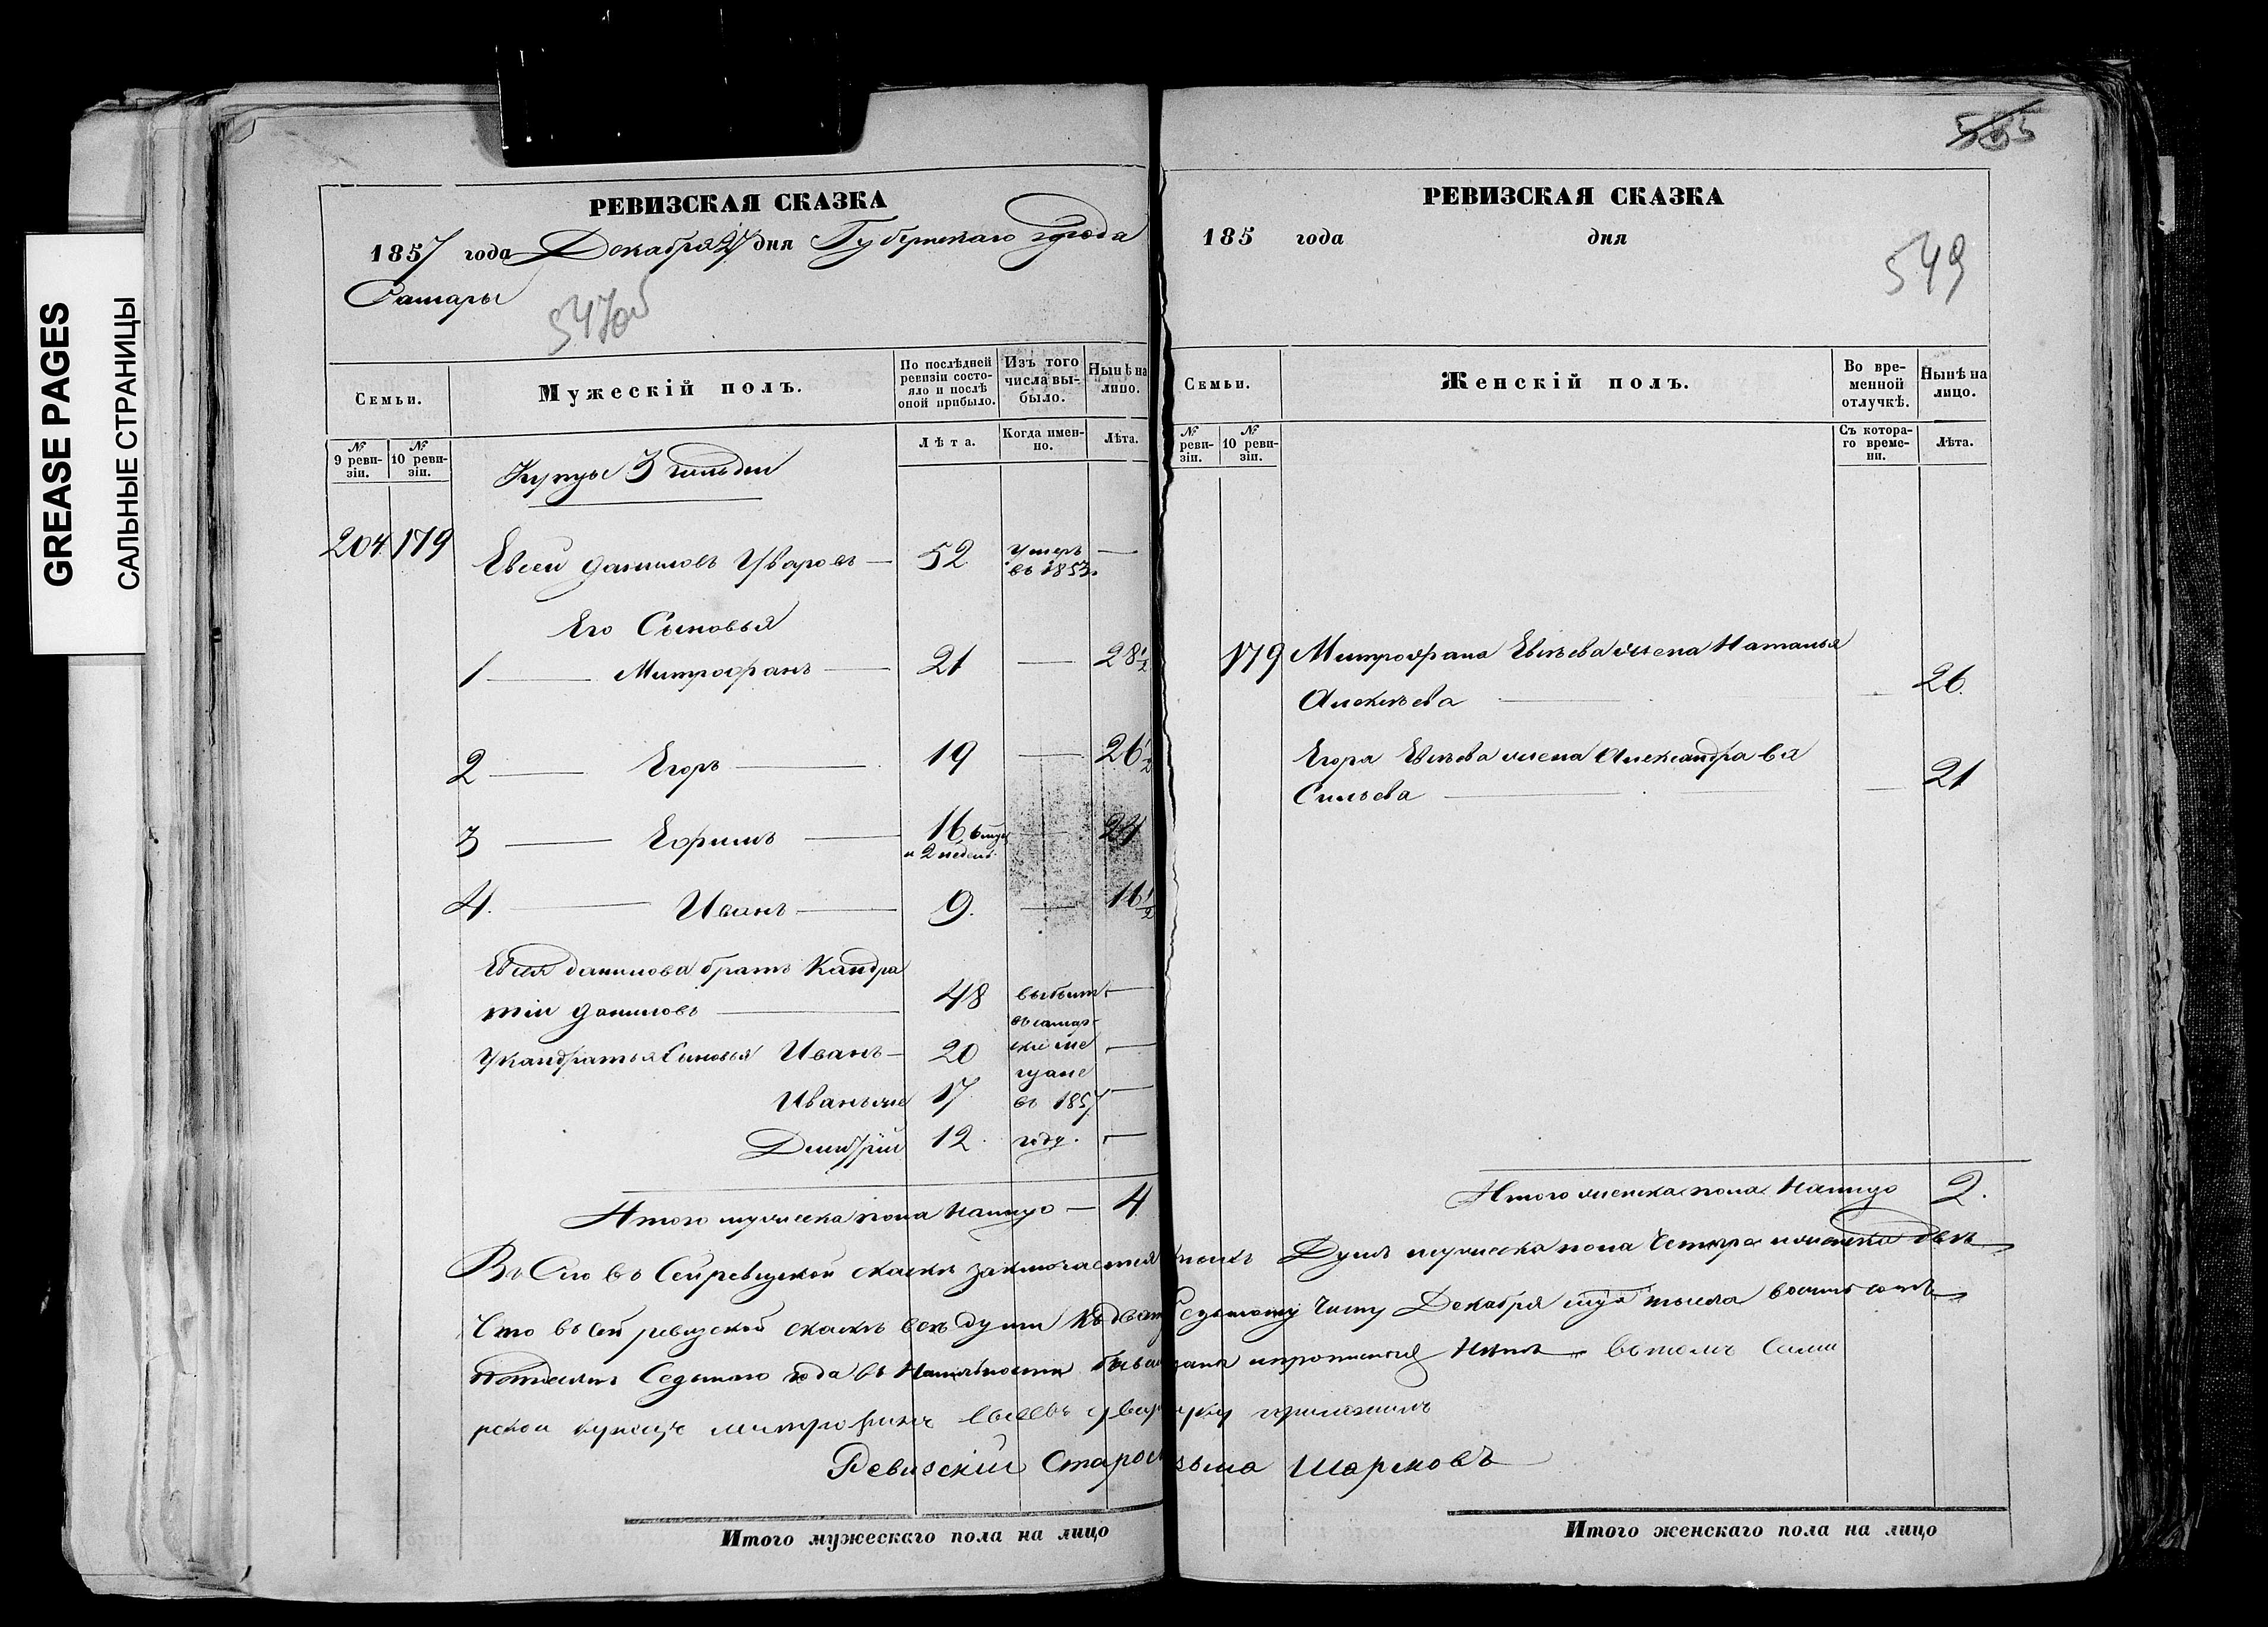 GREASE PAGES
САЛЬНЫЕ СТРАНИЦЫ
РЕВИЗСКАЯ СКАЗКА
1857 года Декабря 27 дня Губернскаго города
Самары
547об
Семьи.
Мужескій полъ.
По послѣдней ревизіи состояло и послѣ оной прибыло.
Изъ того числа выбыло.
Нынѣ на лицо.
№ 9 ревизіи.
№ 10 ревизіи.
Лѣта.
Когда именно.
Лѣта.
Купцы 3 гильдии
204 179 Евсей Даниловъ Уваровъ — 52 Умеръ въ 1853. —
Его Сыновья
1 — Митрофанъ — 21 — 28 1/2
2 — Егоръ — 19 — 26 1/2
3 — Ефимъ — 16, 6 и 2 недели — 24
4. — Иванъ — 9. — 16 1/2
Евсея Данилова братъ Кандра
тій Даниловъ — 48 выбыли —
въ самар-
У Кандратья Сыновья Иванъ — 20 ские ме —
щане
Иванъ же 17 въ 1857 —
Дмитрій 12. году. —
Итого мужеска пола налицо — 4
585
РЕВИЗСКАЯ СКАЗКА
185 года дня
549
Семьи.
Женскій полъ.
Во временной отлучкѣ.
Нынѣ на лицо.
№ ревизіи.
№ 10 ревизіи.
Съ котораго времени.
Лѣта.
179 Митрофана Евсѣева жена Наталья
Алексѣева — — 26.
Егора Евсѣева жена Александра Ва
Сильева — — 21
Итого женска пола налицо 2.
Всего въ Сей ревизской скаскѣ заключается Душъ мужеска пола Четыре и женска двѣ
Что въ сей ревизской скаскѣ всѣ души Къ Седьмому Числу Декабря тысяча восимъ сотъ
Седьмого года въ Наличности въ томъ Сама
рской купецъ митрофанъ Евсеевъ уваровъ руку приложилъ
Ревизскій Старо Шарековъ
Итого мужескаго пола на лицо
Итого женскаго пола на лицо